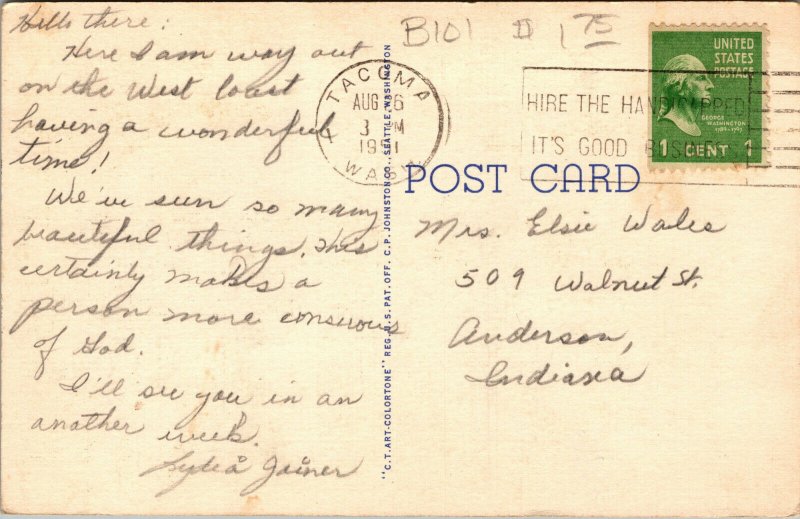 Hello there:
Here I am way out
on the West Coast
having a wonderful
time!
We've seen so many
beautiful things. This
certainly makes a
person more conscious
of God.
I'll see you in an
another week.
Lydia Joiner
B101 $ 1 75
TACOMA
AUG 6
3 PM
1951
WASH
HIRE THE HANDICAPPED
IT'S GOOD BUSINESS
UNITED
STATES
POSTAGE
GEORGE
WASHINGTON
1789-1797
1 CENT 1
POST CARD
Mrs. Elsie Wales
509 Walnut St.
Anderson,
Indiana
"C.T. ART-COLORTONE" REG. U.S. PAT. OFF. C. P. JOHNSTON CO., SEATTLE, WASHINGTON